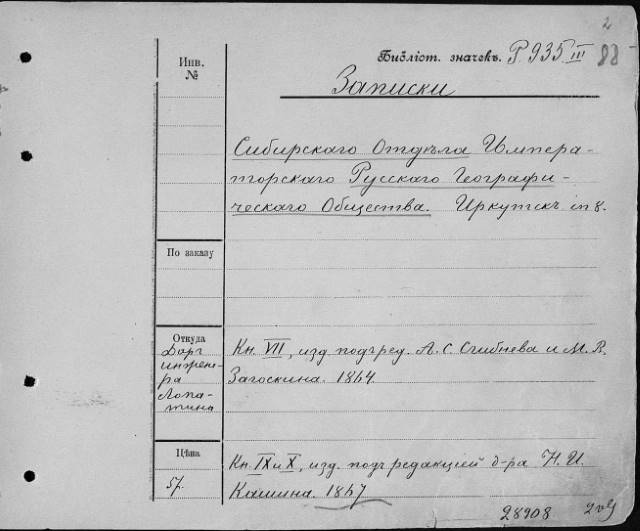 2
Библіот. значекъ. P 935 III 88
Инв.
№
Записки
Сибирскаго Отдѣла Импера-
торскаго Русскаго Географи-
ческаго Общества. Иркутскъ in 8.
По заказу
Откуда
Даръ
инжене-
ра
Лопа-
тина
Кн. VII, изд. подъ ред. А. С. Сгибнева и М. В.
Загоскина. 1864.
Цѣна
Кн. IX и X, изд. подъ редакціей д-ра Н. И.
Кашина. 1867
28908